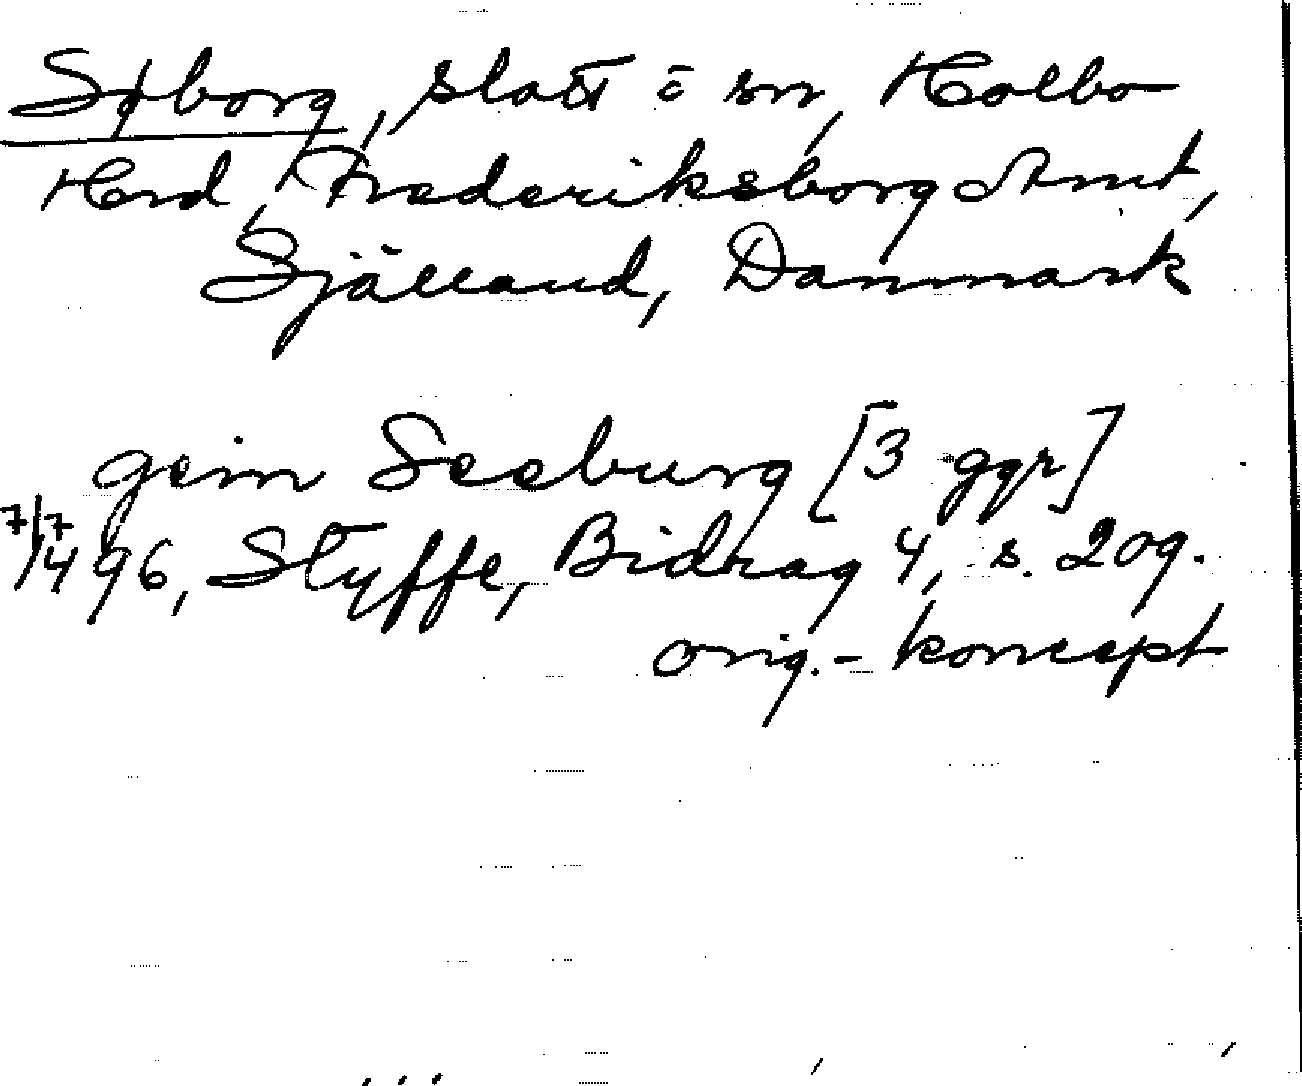 Søborg, slott o sn, Holbo
Hrd, Frederiksborg Amt,
Själland, Danmark
gein Seeburg [3 ggr]
7/7 1496, Styffe, Bidrag 4, s. 209.
orig.- koncept